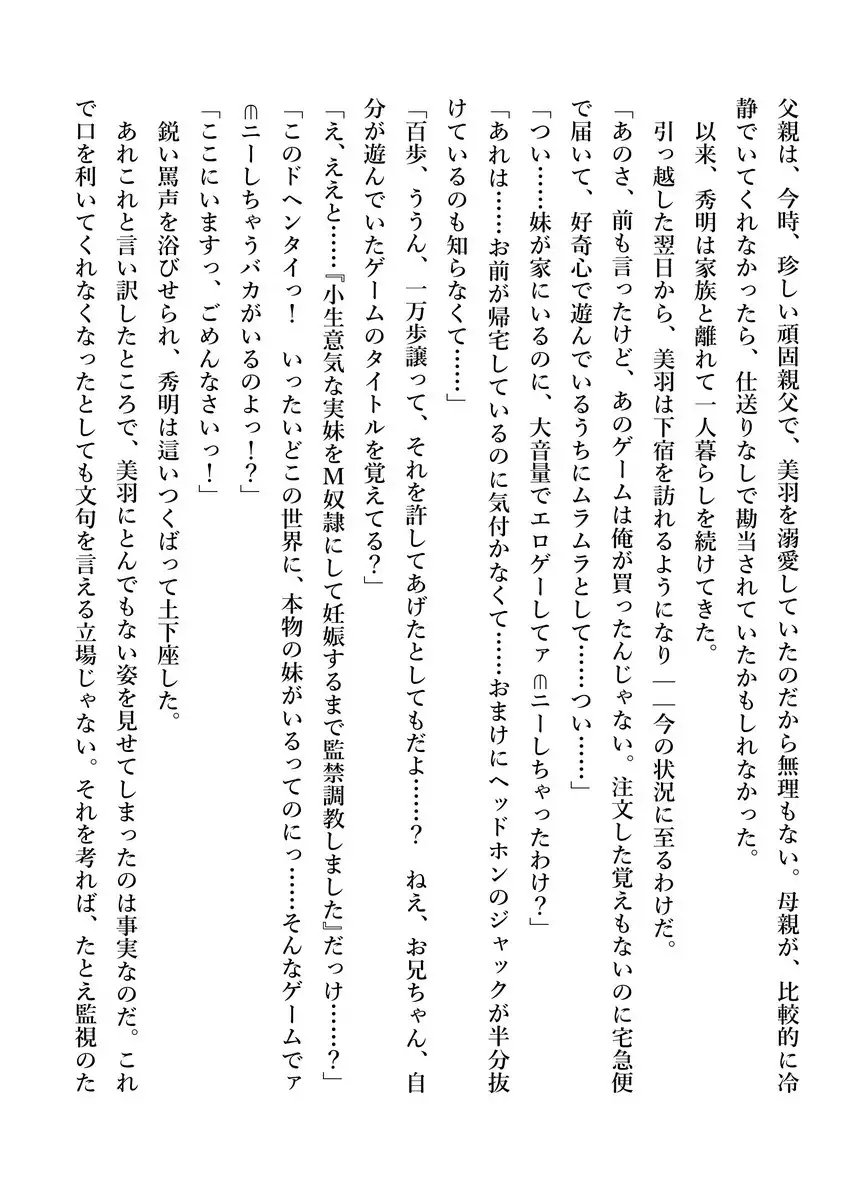 父親は、今時、珍しい頑固親父で、美羽を溺愛していたのだから無理もない。母親が、比較的に冷
静でいてくれなかったら、仕送りなしで勘当されていたかもしれなかった。
以来、秀明は家族と離れて一人暮らしを続けてきた。
引っ越した翌日から、美羽は下宿を訪れるようになり――今の状況に至るわけだ。
「あのさ、前も言ったけど、あのゲームは俺が買ったんじゃない。注文した覚えもないのに宅急便
で届いて、好奇心で遊んでいるうちにムラムラとして……つい……」
「つい……妹が家にいるのに、大音量でエロゲーしてァ⋒ニーしちゃったわけ？」
「あれは……お前が帰宅しているのに気付かなくて……おまけにヘッドホンのジャックが半分抜
けているのも知らなくて……」
「百歩、ううん、一万歩譲って、それを許してあげたとしてもだよ……？　ねえ、お兄ちゃん、自
分が遊んでいたゲームのタイトルを覚えてる？」
「え、ええと……『小生意気な実妹をM奴隷にして妊娠するまで監禁調教しました』だっけ……？」
「このドヘンタイっ！　いったいどこの世界に、本物の妹がいるってのにっ……そんなゲームでァ
⋒ニーしちゃうバカがいるのよっ！？」
「ここにいますっ、ごめんなさいっ！」
鋭い罵声を浴びせられ、秀明は這いつくばって土下座した。
あれこれと言い訳したところで、美羽にとんでもない姿を見せてしまったのは事実なのだ。これ
で口を利いてくれなくなったとしても文句を言える立場じゃない。それを考れば、たとえ監視のた